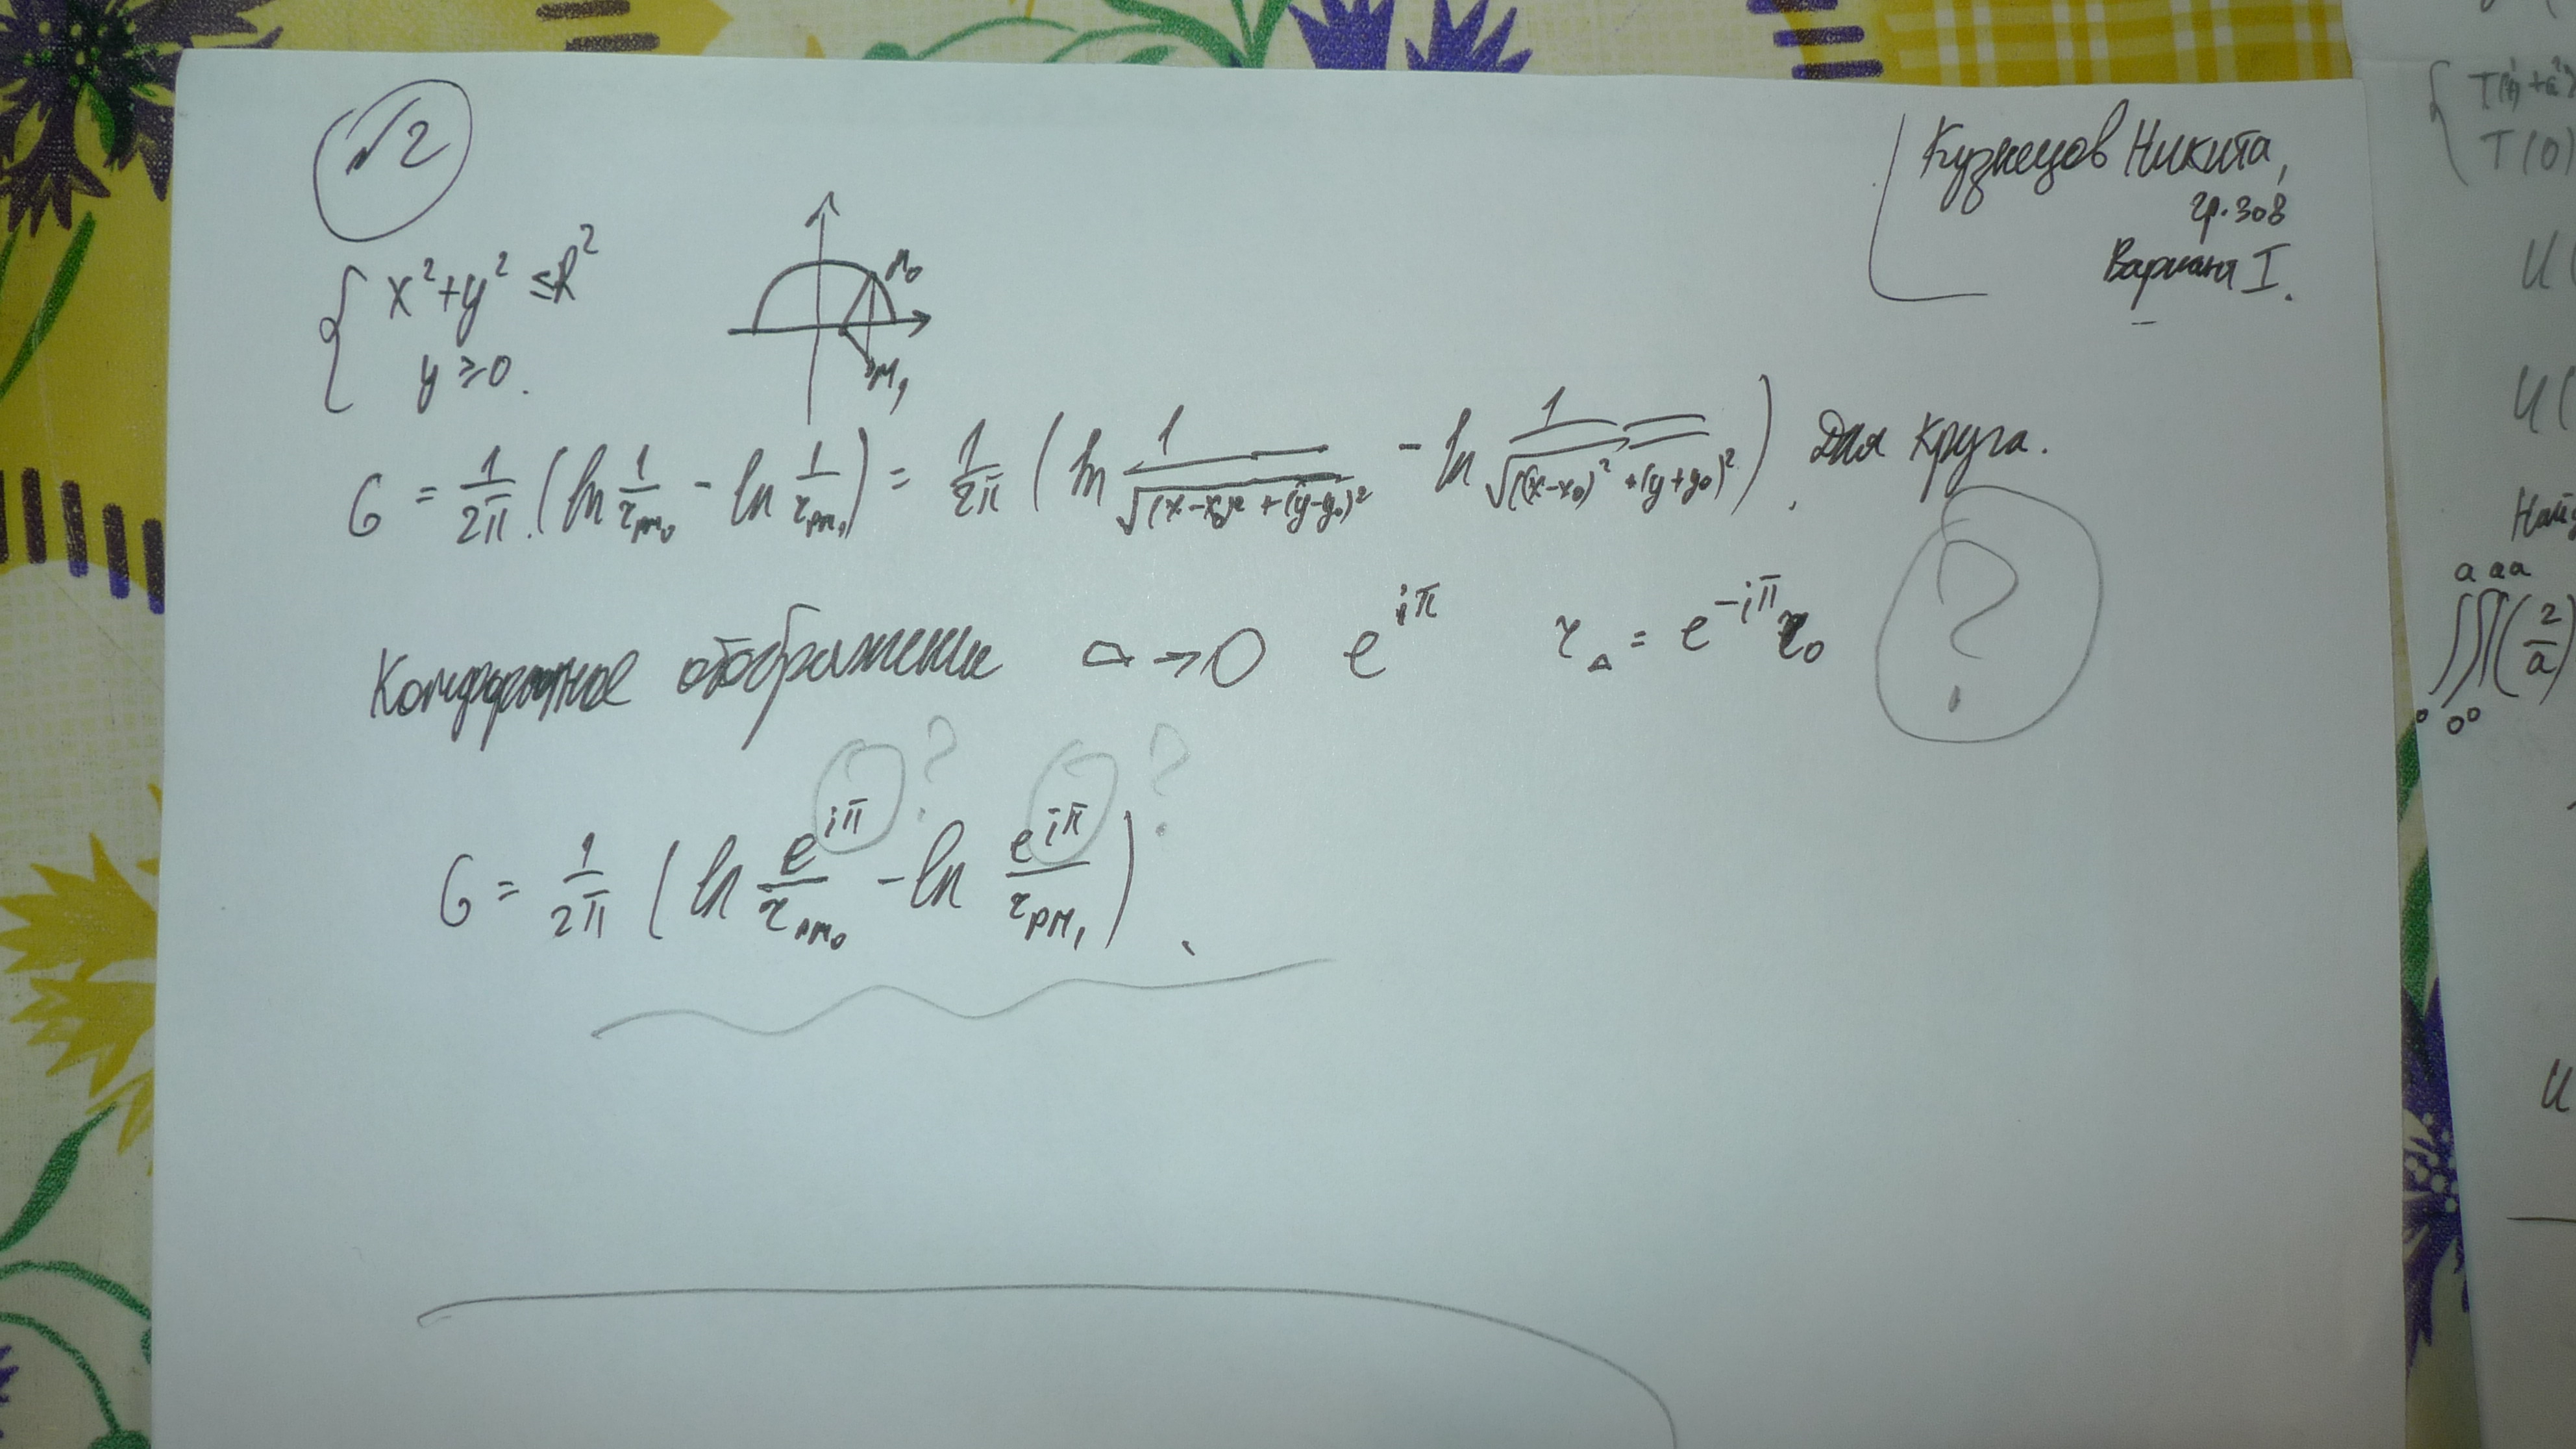 №2
Кузнецов Никита,
гр. 308
Вариант I.
{ x² + y² ≤ R²
y ≥ 0.
M₀
M₁
G = 1/2π (ln 1/r_PM₀ - ln 1/r_PM₁) = 1/2π (ln 1/√((x-x₀)² + (y-y₀)²) - ln 1/√((x-x₀)² + (y+y₀)²)). Для круга.
Конформное отображение ⌓ → O e^{iπ} r_⌓ = e^{-iπ} r₀ ?
G = 1/2π (ln e^{iπ}/r_PM₀ - ln e^{iπ}/r_PM₁). ? ?
T(0)
U(
U(
a a a
∭(2/a)
0 0 0
U